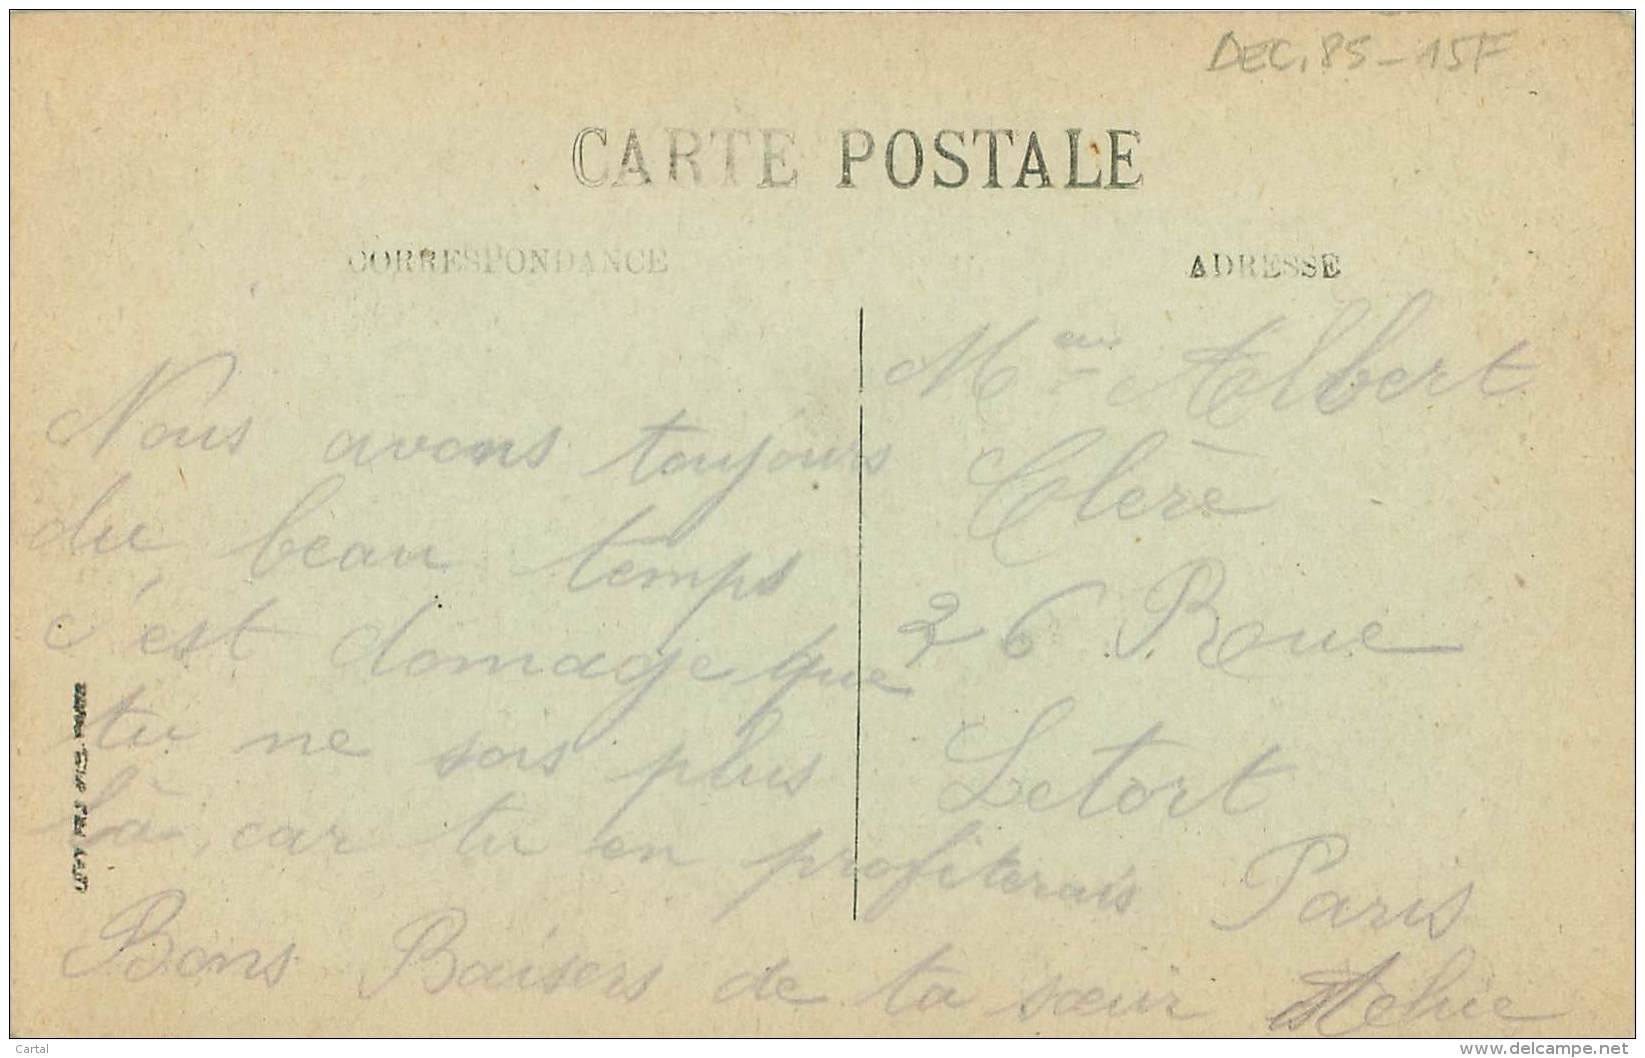 DEC. 85 - 15F
CARTE POSTALE
CORRESPONDANCE
ADRESSE
Nous avons toujours
du beau temps
c'est domage que
tu ne sois plus
là, car tu en profiterais
Bons Baisers de ta sœur
Mme Albert
Clère
26 Roue
Letort
Paris
Cartal
delcampe.net